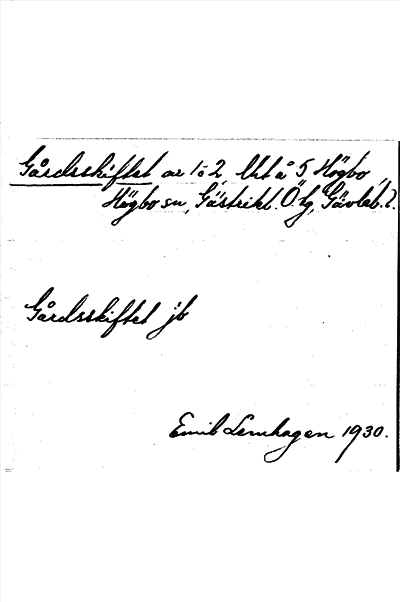 Gårdsskiftet av 1 o 2 Utt å 5 Högbo,
Högbo sn, Gästrikl. Ö. tg, Gävleb. l.
Gårdsskiftet jb
Emil Lernhagen 1930.